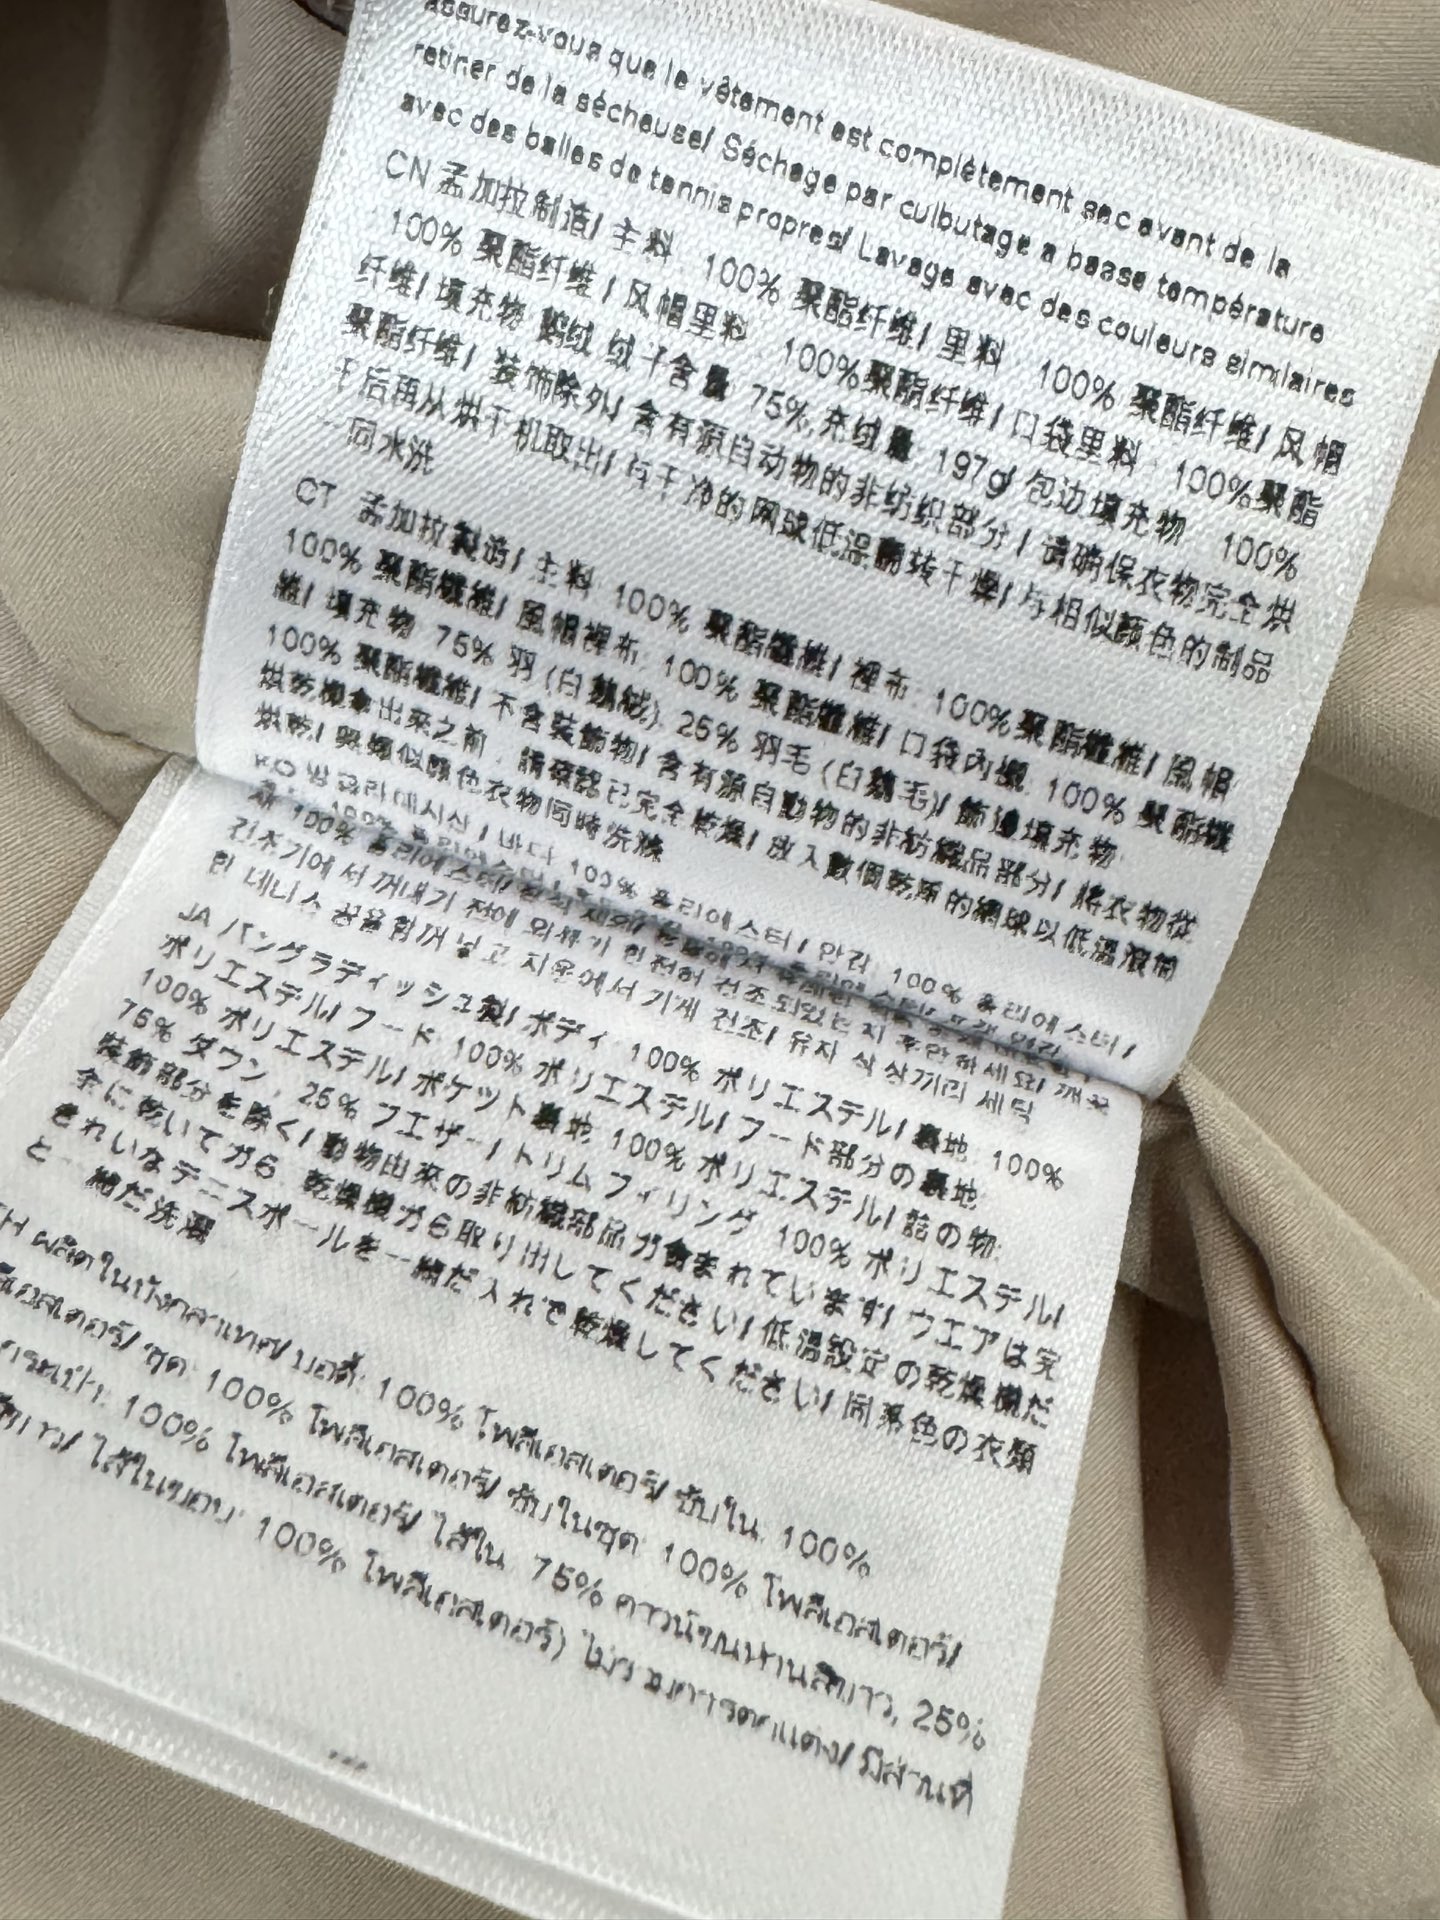 assurez-vous que le vêtement est complètement sec avant de la
retirer de la sécheuse/ Séchage par culbutage a basse température
avec des balles de tennis propres/ Lavage avec des couleurs similaires
CN 孟加拉制造/ 主料 100% 聚酯纤维/ 里料 100% 聚酯纤维/ 风帽
100% 聚酯纤维 / 风帽里料 100%聚酯纤维/ 口袋里料 : 100%聚酯
纤维/ 填充物 鹅绒 绒子含量 75%,充绒量 197g/ 包边填充物 100%
聚酯纤维/ 装饰除外/ 含有源自动物的非纺织部分 / 请确保衣物完全烘
干后再从烘干机取出/ 与干净的网球低温翻转干燥/ 与相似颜色的制品
一同水洗
CT 孟加拉製造/ 主料 100% 聚酯纖維/ 裡布: 100%聚酯纖維/ 風帽
100% 聚酯纖維/ 風帽裡布: 100% 聚酯纖維/ 口袋內襯: 100% 聚酯纖
維/ 填充物: 75% 羽 (白鵝絨), 25% 羽毛 (白鵝毛)/ 飾邊填充物
100% 聚酯纖維/ 不含裝飾物/ 含有源自動物的非紡織品部分/ 將衣物從
烘乾機拿出來之前 , 請確認已完全乾燥/ 放入數個乾淨的網球以低溫滾筒
烘乾/ 與類似顏色衣物同時洗滌
KO 방글라데시산 / 바디 100% 폴리에스터 / 안감: 100% 폴리에스터 /
100% 폴리에스터/
건조기에서 꺼내기 전에 의류가 완전히 건조되었는지 확인하세요/ 깨끗
한 테니스 공을 함께 넣고 저온에서 기계 건조/ 유사 색상끼리 세탁
JA バングラディッシュ製/ ボディ: 100% ポリエステル/ 裏地: 100%
ポリエステル/ フード: 100% ポリエステル/ フード部分の裏地:
100% ポリエステル/ ポケット裏地: 100% ポリエステル/ 詰め物:
75% ダウン, 25% フェザー/ トリム フィリング: 100% ポリエステル/
装飾部分を除く/ 動物由来の非紡織部品が含まれています/ ウエアは完
全に乾いてから、乾燥機から取り出してください/ 低温設定の乾燥機だ
きれいなテニスボールを一緒だ入れて乾燥してください/ 同系色の衣類
と一緒だ洗濯
TH ผลิตในบังกลาเทศ/ บอดี้: 100% โพลีเอสเตอร์/ ซับใน: 100%
โพลีเอสเตอร์/ ฮูด: 100% โพลีเอสเตอร์/ ซับในฮูด: 100% โพลีเอสเตอร์/
กระเป๋า: 100% โพลีเอสเตอร์/ ไส้ใน: 75% ดาวน์ขนห่านสีขาว, 25%
สีขาว/ ไส้ในขอบ: 100% โพลีเอสเตอร์) ไม่รวมการตกแต่ง/ มีส่วนที่